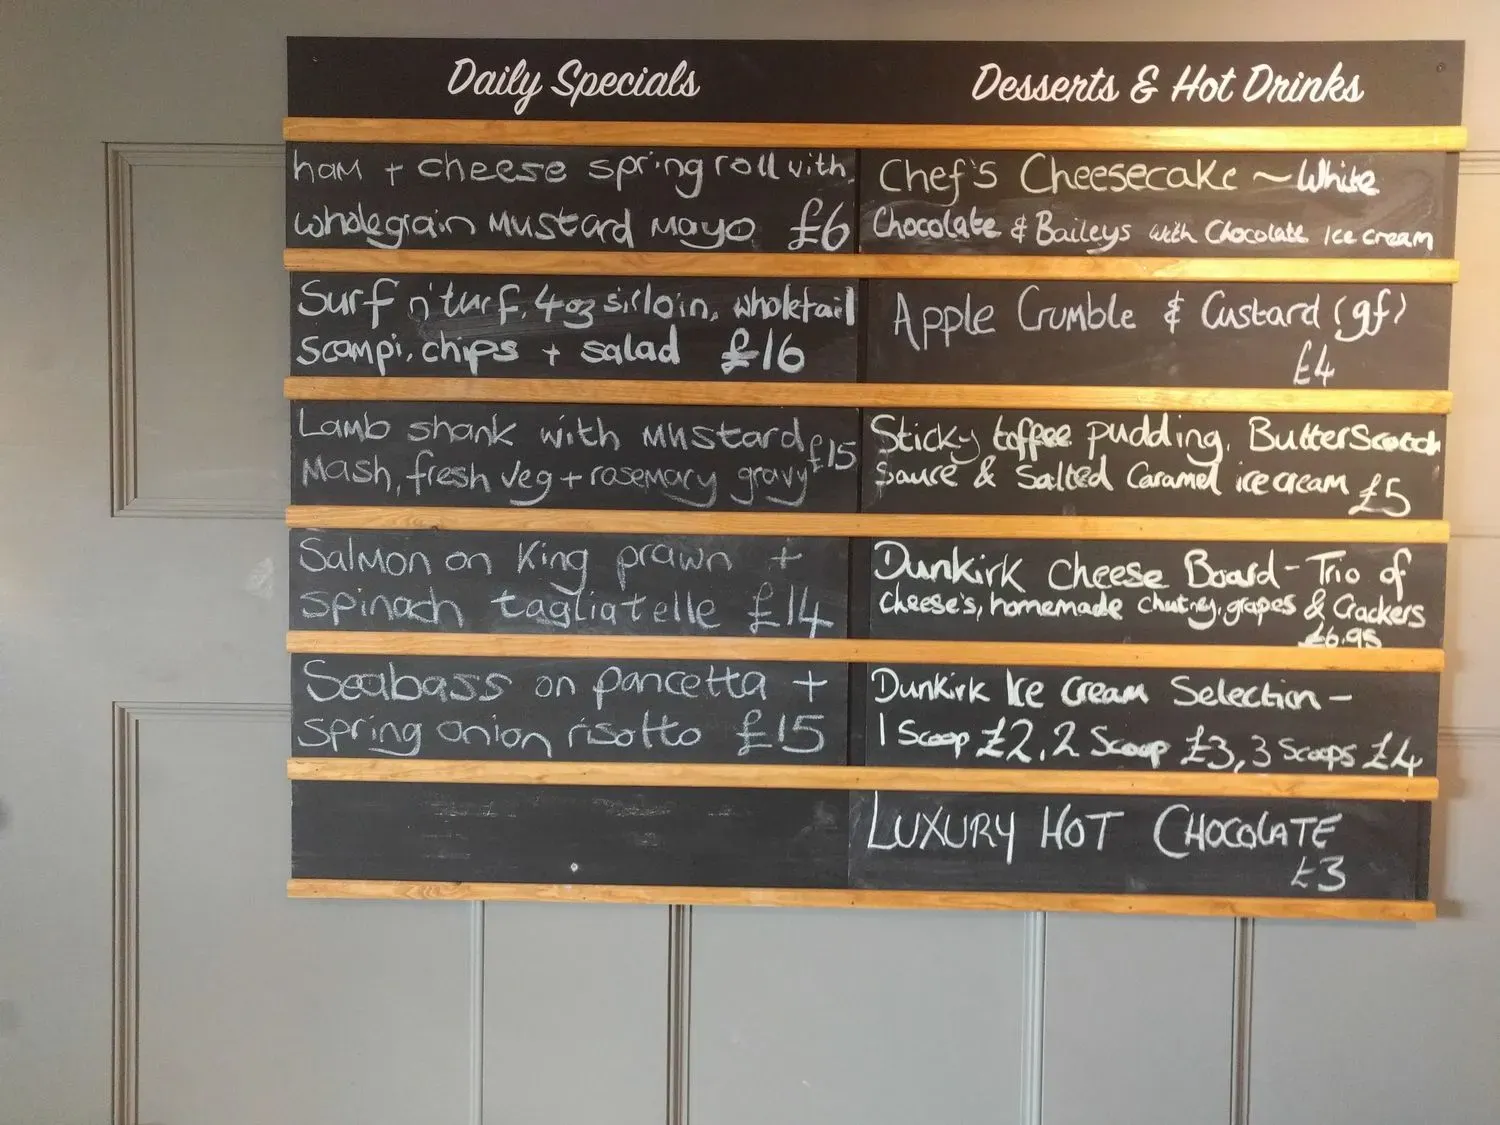 Daily Specials
ham + cheese spring roll with
wholegrain mustard mayo £6
Surf n' turf, 4oz sirloin, wholetail
scampi, chips + salad £16
Lamb shank with mustard £15
mash, fresh veg + rosemary gravy
Salmon on king prawn +
spinach tagliatelle £14
Seabass on pancetta +
spring onion risotto £15
Desserts & Hot Drinks
Chef's Cheesecake ~ White
Chocolate & Baileys with Chocolate Ice cream
Apple Crumble & Custard (gf)
£4
Sticky toffee pudding, ButterScotch
Sauce & Salted Caramel ice cream £5
Dunkirk Cheese Board - Trio of
cheese's, homemade chutney, grapes & Crackers
£6.95
Dunkirk Ice Cream Selection -
1 Scoop £2, 2 Scoop £3, 3 Scoops £4
LUXURY HOT CHOCOLATE
£3